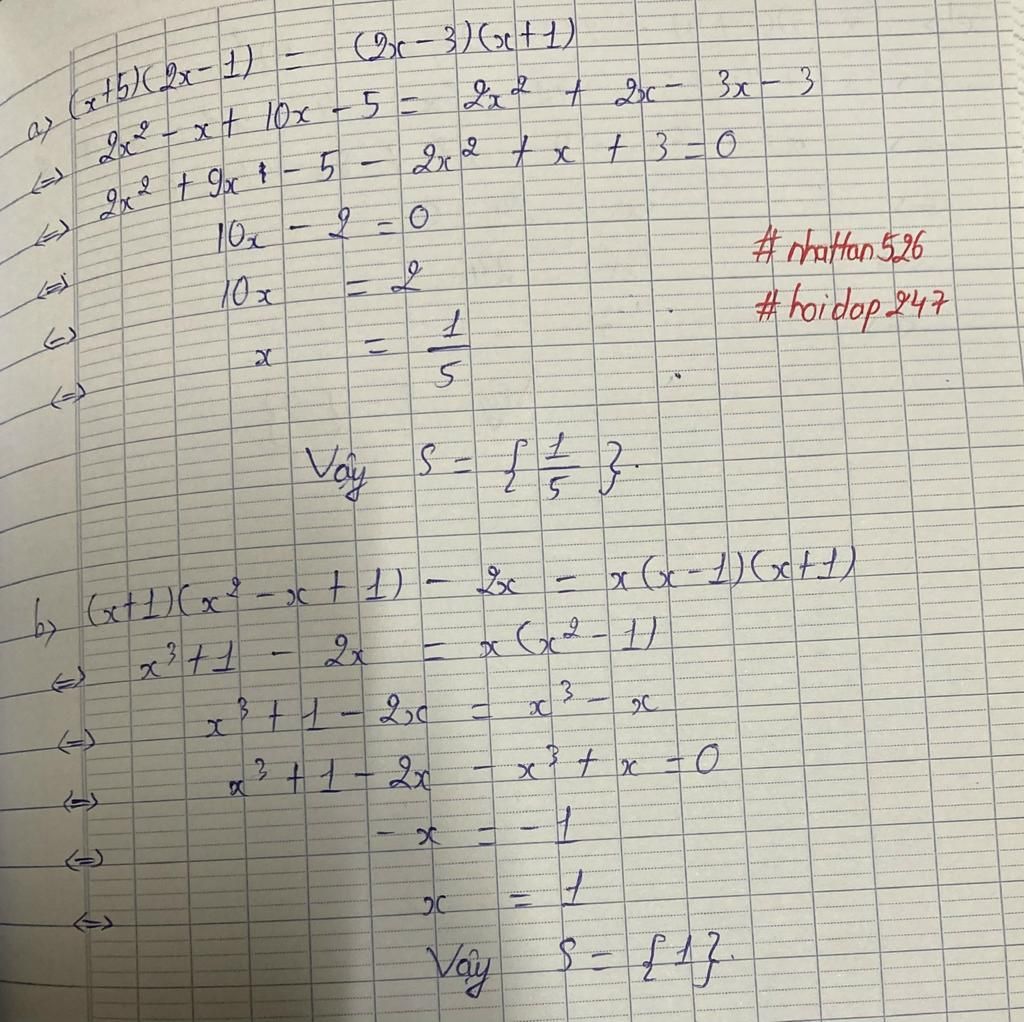 a) (x+5)(2x-1) = (2x-3)(x+1)
(=) 2x² - x + 10x - 5 = 2x² + 2x - 3x - 3
(=) 2x² + 9x - 5 - 2x² + x + 3 = 0
(=) 10x - 2 = 0
(=) 10x = 2
(=) x = 1/5
# nhattan526
# hoidap247
Vậy S = { 1/5 }.
b) (x+1)(x² - x + 1) - 2x = x(x-1)(x+1)
(=) x³ + 1 - 2x = x(x² - 1)
(=) x³ + 1 - 2x = x³ - x
(=) x³ + 1 - 2x - x³ + x = 0
(=) - x = - 1
(=) x = 1
Vậy S = {1}.